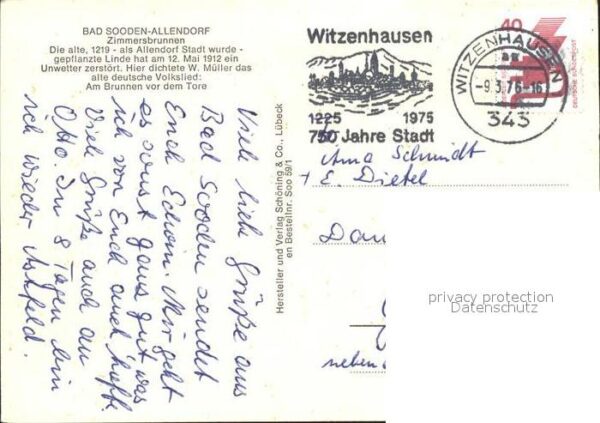 BAD SOODEN-ALLENDORF
Zimmersbrunnen
Die alte, 1219 - als Allendorf Stadt wurde -
gepflanzte Linde hat am 12. Mai 1912 ein
Unwetter zerstört. Hier dichtete W. Müller das
alte deutsche Volkslied:
Am Brunnen vor dem Tore
Viele liebe Grüße aus
Bad Sooden sendet
Euch Edwin. Mir geht
es sonst ganz gut was
ich von Euch auch hoffe.
Viele Grüße auch an
Otto. In 8 Tagen bin
ich wieder
Hersteller und Verlag Schöning & Co., Lübeck
en Bestellnr. Soo 59/1
Witzenhausen
1225 1975
750 Jahre Stadt
40
DEUTSCHE BUNDESPOST
WITZENHAUSEN
-9.3.76-16
343
Anna Schmidt
+ E. Dietel
Dau
neben
privacy protection
Datenschutz